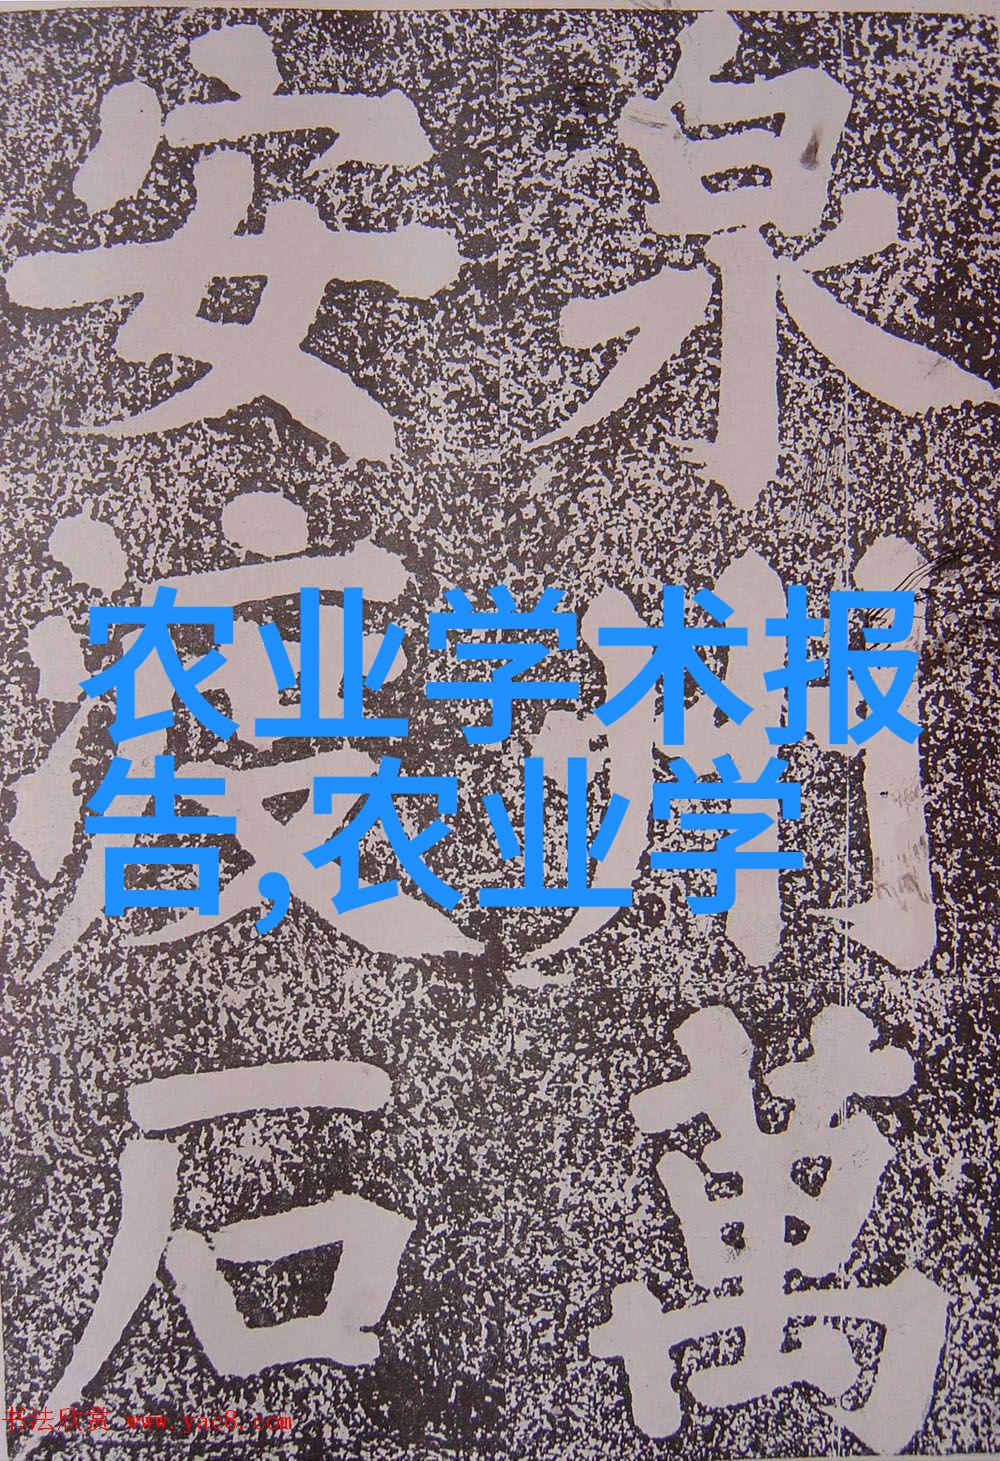 泉州萬
安渡石
农业学术报
告,农业学
书法欣赏 www.yac8.com